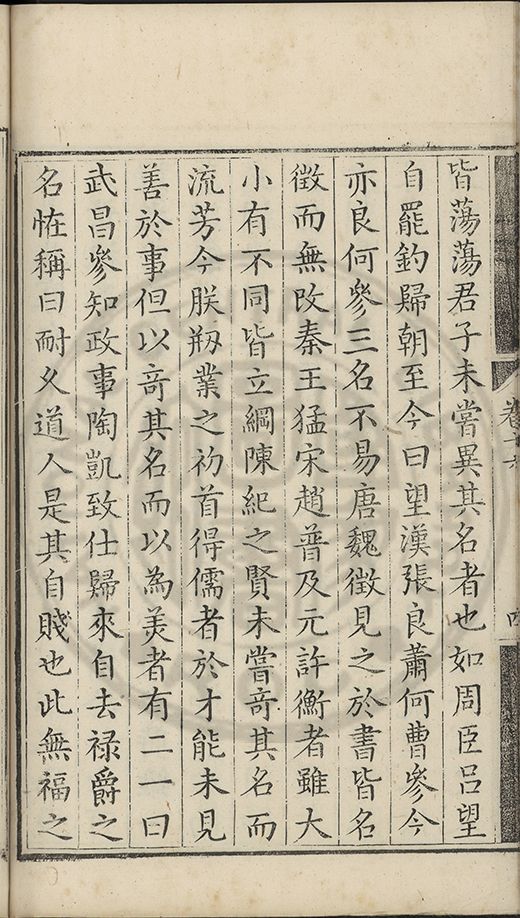 皆蕩蕩君子未嘗異其名者也如周臣呂望
自罷釣歸朝至今曰望漢張良蕭何曹參今
亦良何參三名不易唐魏徵見之於書皆名
徵而無改秦王猛宋趙普及元許衡者雖大
小有不同皆立綱陳紀之賢未嘗竒其名而
流芳今朕剏業之初首得儒者於才能未見
善於事但以竒其名而以為羙者有二一曰
武昌參知政事陶凱致仕歸來自去禄爵之
名恠稱曰耐乆道人是其自賤也此無福之